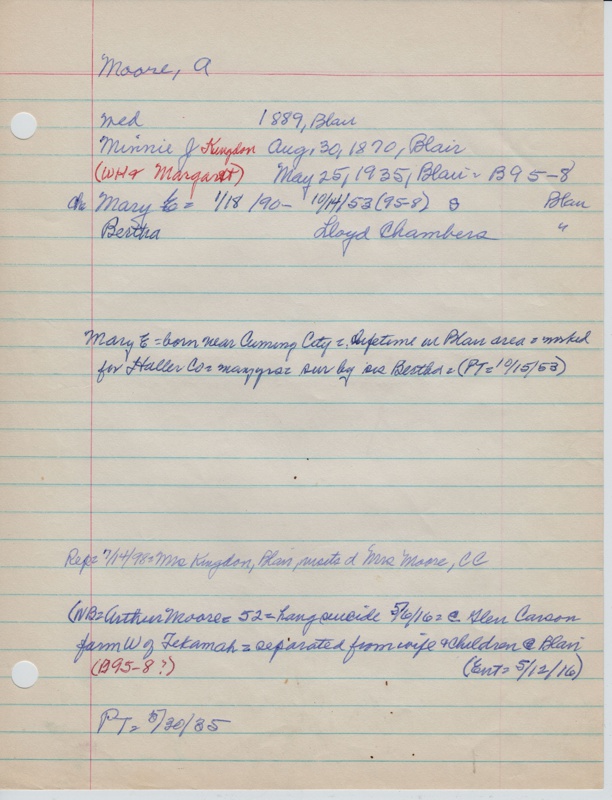 Moore, A
Med 1889, Blair
Minnie J Kingdon Aug, 30, 1870, Blair
(WH & Margarett) May 25, 1935, Blair - B95-8
Ch: Mary E = 1/18/90 - 10/14/53 (95-8) S Blair
Bertha Lloyd Chambers "
Mary E = born near Cuming City = lifetime in Blair area = worked
for Haller Co = many yrs = sur by sis Bertha = (PT = 10/15/53)
Rep = 7/14/98 = Mrs Kingdon, Blair, visits d Mrs Moore, CC
(NB = Arthur Moore = 52 = hang suicide 5/6/16 = @ Glen Carson
farm W of Tekamah = separated from wife & children @ Blair
(B95-8?) (Ent = 5/12/16)
PT = 5/30/35